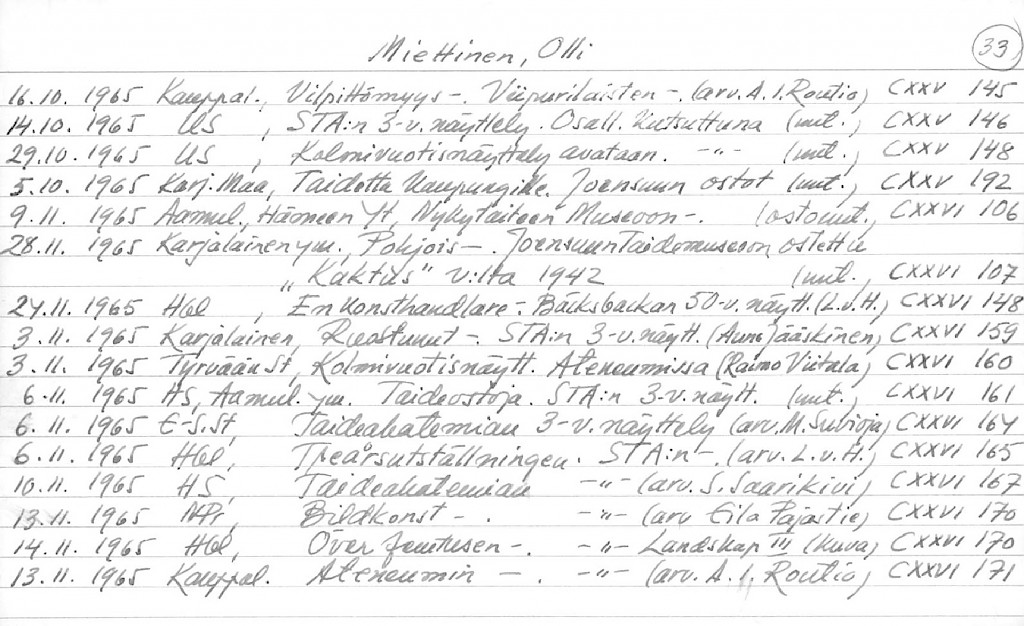 Miettinen, Olli
33
16.10. 1965 Kauppal., Vilpittömyys -. Viipurilaisten -. (arv. A.I. Routio) CXXV 145
14.10. 1965 US , STA:n 3-v.näyttely. Osall. kutsuttuna (uut., CXXV 146
29.10. 1965 US , Kolmivuotisnäyttely avataan. -"- (uut., CXXV 148
5.10. 1965 Karj. Maa, Taidetta kaupungille. Joensuun ostot (uut., CXXV 192
9.11. 1965 Aamul., Hämeen Yht, Nykytaiteen Museoon -. (ostouut., CXXVI 106
28.11. 1965 Karjalainen ym., Pohjois -. Joensuun Taidemuseoon ostettu
"Kaktus" v:lta 1942 (uut., CXXVI 107
24.11. 1965 Hbl , En konsthandlare -. Bäcksbackan 50-v. näytt. (L.v.H.) CXXVI 148
3.11. 1965 Karjalainen, Ruostunut -. STA:n 3-v.näytt. (Aune Jääskinen) CXXVI 159
3.11. 1965 Tyrvään St, Kolmivuotisnäytt. Ateneumissa (Raimo Viitala) CXXVI 160
6.11. 1965 HS, Aamul. ym. Taideostoja. STA:n 3-v.näytt. (uut., CXXVI 161
6.11. 1965 E-S.St, Taideakatemian 3-v.näyttely (arv. M. Suvioja) CXXVI 164
6.11. 1965 Hbl, Treårsutställningen. STA:n -. (arv. L.v.H.) CXXVI 165
10.11. 1965 HS, Taideakatemian -"- (arv. S. Saarikivi) CXXVI 167
13.11. 1965 NPr, Bildkonst -. -"- (arv Eila Pajastie) CXXVI 170
14.11. 1965 Hbl, Över -. -"- Landskap III (kuva) CXXVI 170
13.11. 1965 Kauppal. Ateneumin -. -"- (arv. A.I. Routio) CXXVI 171